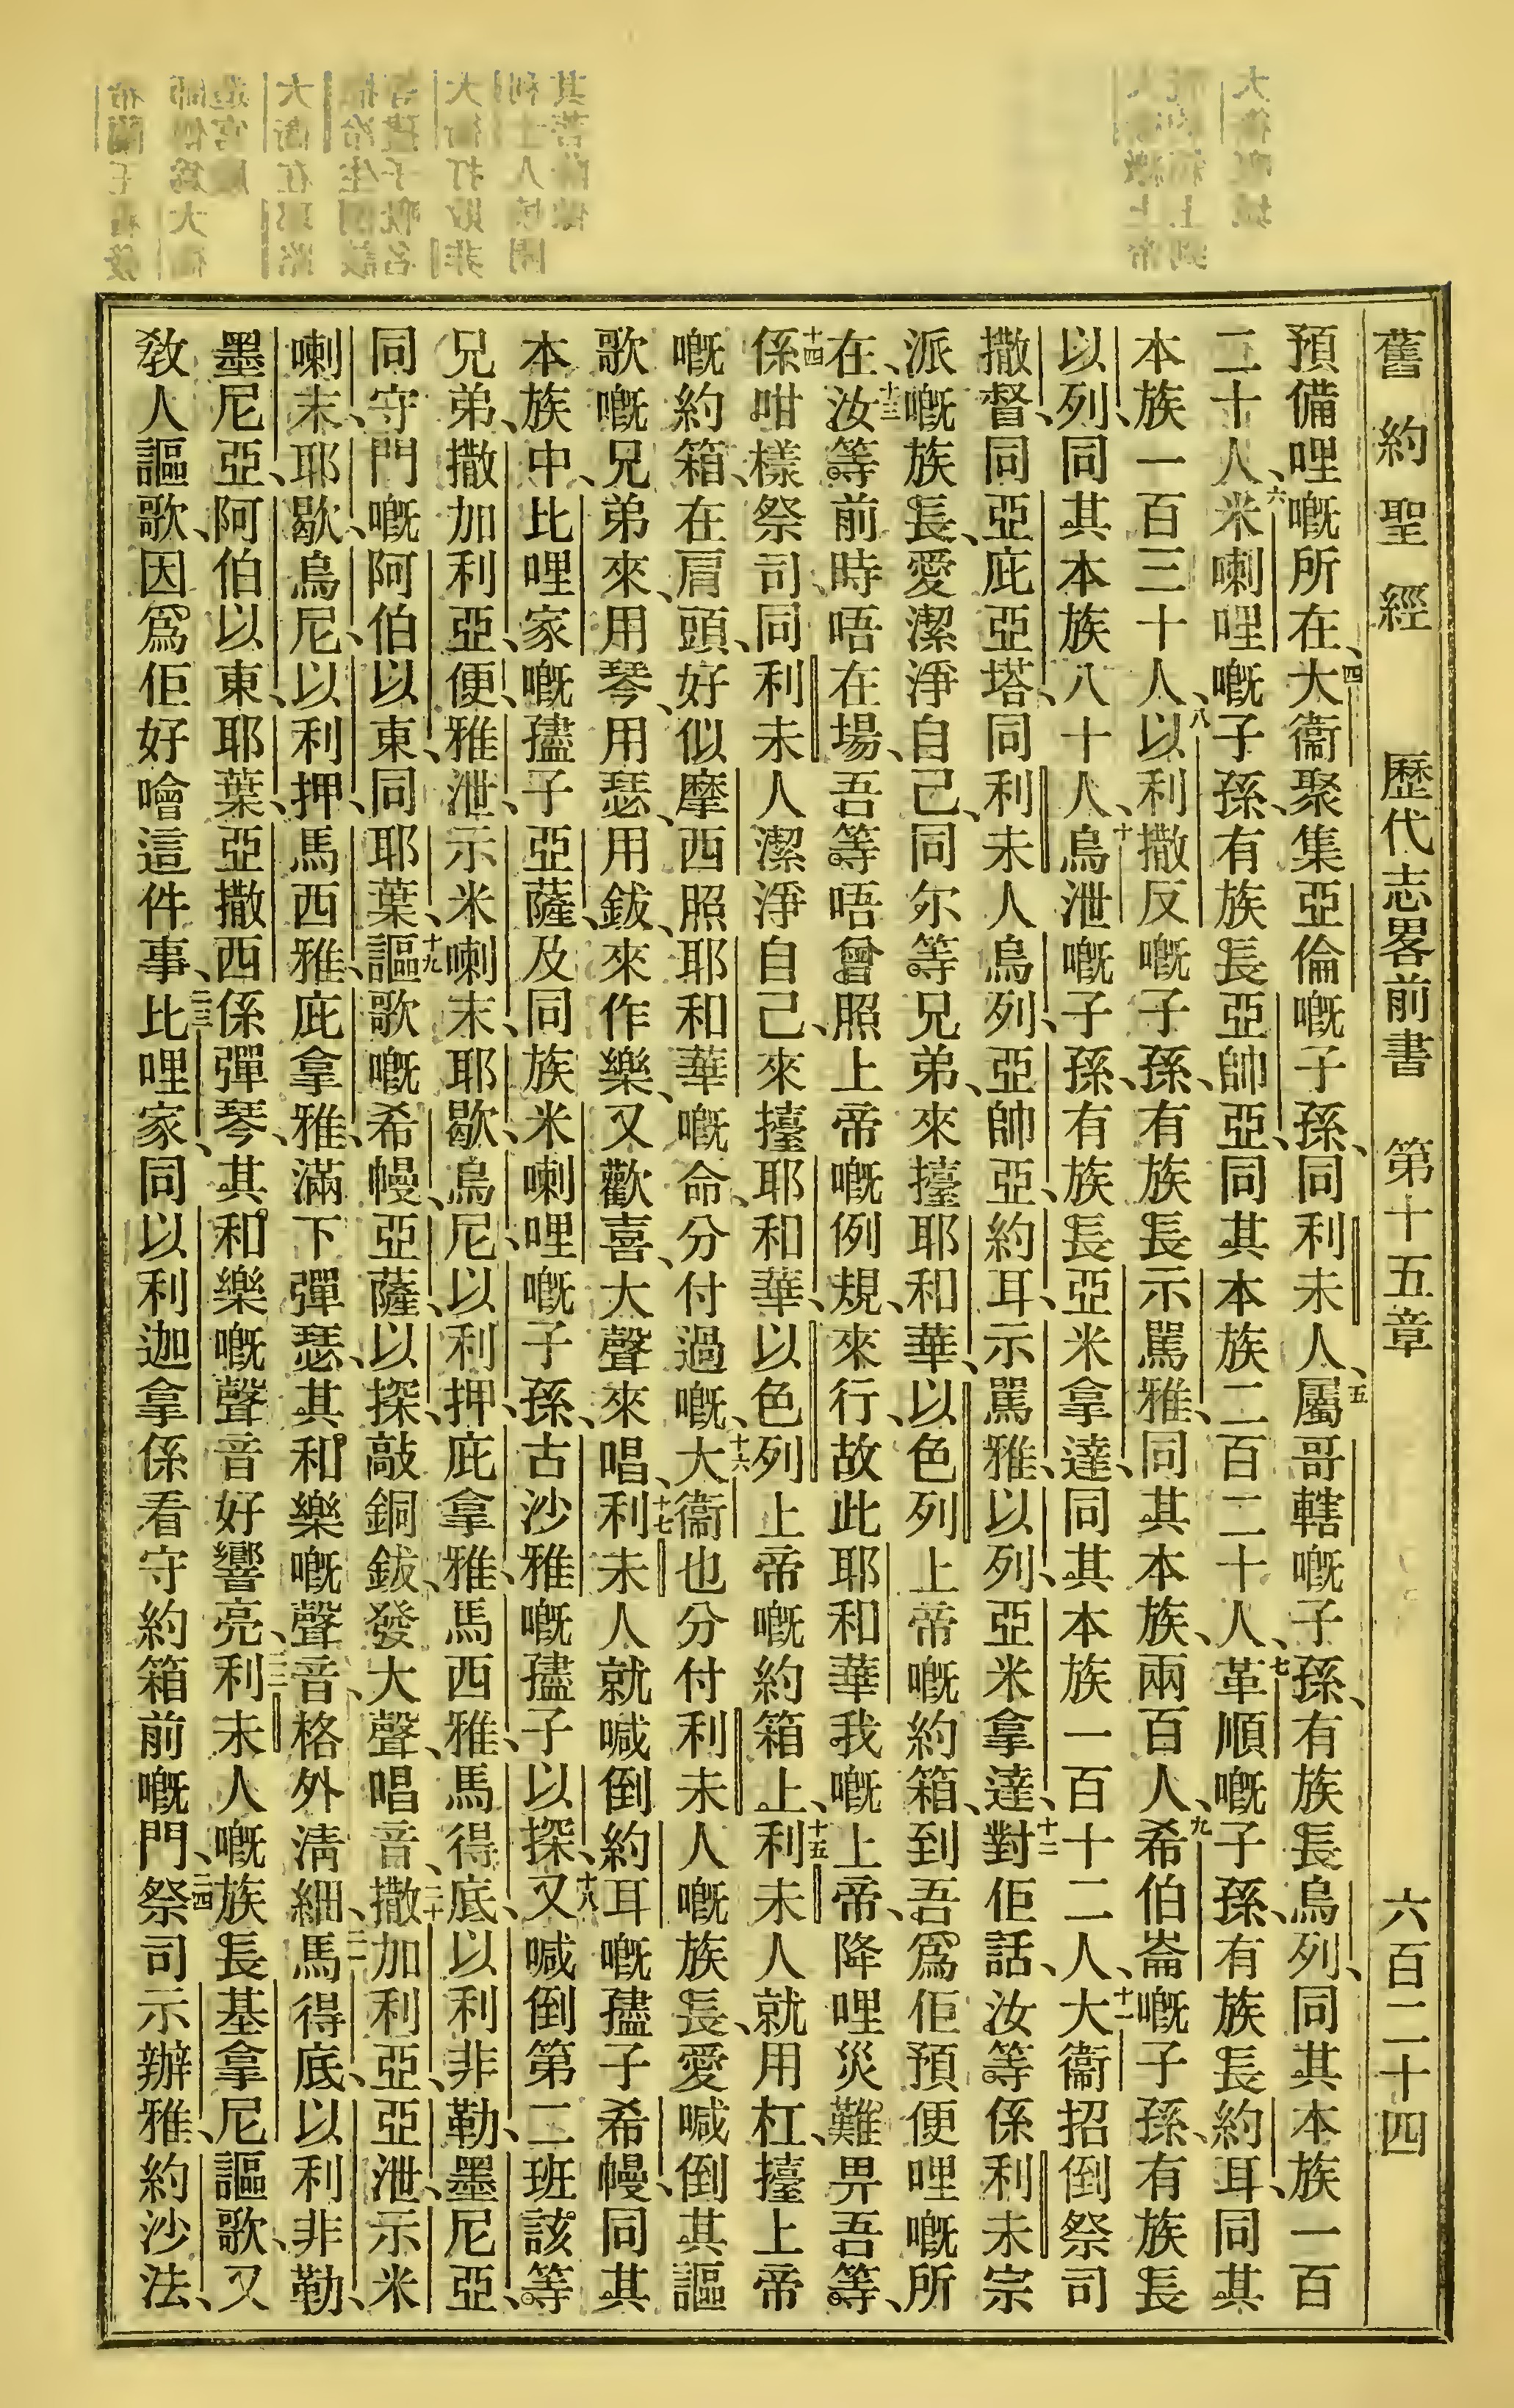 舊約聖經 歷代志畧前書 第十五章 六百二十四
預備哩嘅所在、四大衞聚集亞倫嘅子孫、同利未人、五屬哥轄嘅子孫、有族長烏列、同其本族一百
二十人、六米喇哩嘅子孫、有族長亞帥亞、同其本族二百二十人、七革順嘅子孫、有族長約耳、同其
本族一百三十人、八以利撒反嘅子孫、有族長示罵雅、同其本族、兩百人、九希伯崙嘅子孫、有族長
以列、同其本族八十人、十烏泄嘅子孫、有族長亞米拿達、同其本族一百十二人、十一大衞招倒祭司
撒督、同亞庇亞塔、同利未人烏列、亞帥亞、約耳、示罵雅、以列、亞米拿達、十二對佢話、汝等係利未宗
派嘅族長、愛潔淨自己、同尔等兄弟、來擡耶和華、以色列上帝嘅約箱、到吾爲佢預便哩嘅所
在、十三汝等前時唔在場、吾等唔曾照上帝嘅例規、來行、故此耶和華我嘅上帝、降哩災難畀吾等、
十四係咁樣祭司、同利未人潔淨自己、來擡耶和華、以色列上帝嘅約箱上、十五利未人就用杠、擡上帝
嘅約箱、在肩頭、好似摩西照耶和華嘅命、分付過嘅、十六大衞也分付利未人嘅族長、愛喊倒其謳
歌嘅兄弟來、用琴、用瑟、用鈸、來作樂、又歡喜、大聲來唱、十七利未人就喊倒約耳嘅孻子希幔、同其
本族中、比哩家嘅孻子亞薩、及同族米喇哩嘅子孫、古沙雅嘅孻子以探、十八又喊倒第二班該等
兄弟、撒加利亞、便、雅泄、示米喇末、耶歇、烏尼、以利押、庇拿雅、馬西雅、馬得底、以利非勒、墨尼亞、
同守門嘅阿伯以東、同耶葉、十九謳歌嘅希幔、亞薩、以探、敲銅鈸、發大聲、唱音、二十撒加利亞、亞泄、示米
喇末、耶歇、烏尼、以利押、馬西雅、庇拿雅、滿下彈瑟、其和樂嘅聲音、格外淸細、二一馬得底、以利非勒、
墨尼亞、阿伯以東、耶葉、亞撒西、係彈琴、其和樂嘅聲音好響亮、二二利未人嘅族長基拿尼謳歌、又
教人謳歌、因爲佢好噲這件事、二三比哩家、同以利迦拿係看守約箱前嘅門、二四祭司示辦雅、約沙法、